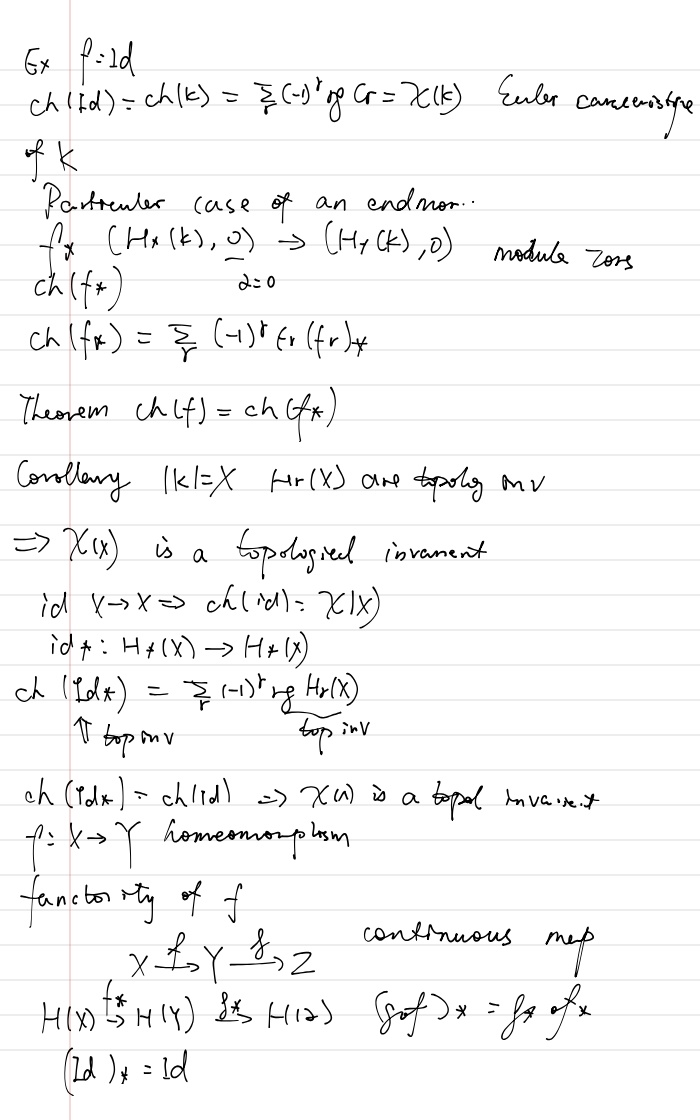 Ex f = Id
ch(Id) = ch(K) = Σ_r (-1)^r rg C_r = χ(K) Euler
of K
Particular case of an endmor..
f_* (H_*(K), 0) → (H_*(K), 0) module tors
ch(f_*) ∂=0
ch(f_*) = Σ_r (-1)^r tr (f_r)_*
Theorem ch(f) = ch(f_*)
Corollary |K| = X H_r(X) are topolog inv
=> χ(X) is a topological invarient
id X → X => ch(id) = χ(X)
id_* : H_*(X) → H_*(X)
ch (Id_*) = Σ_r (-1)^r rg H_r(X)
⇑ top inv top inv
ch (Id_*) = ch(id) => χ(X) is a topol
f: X → Y homeomorphism
functority of f
X →^f Y →^g Z continuous map
H(X) →^{f_*} H(Y) →^{g_*} H(Z) (g∘f)_* = g_* ∘ f_*
(Id)_* = Id